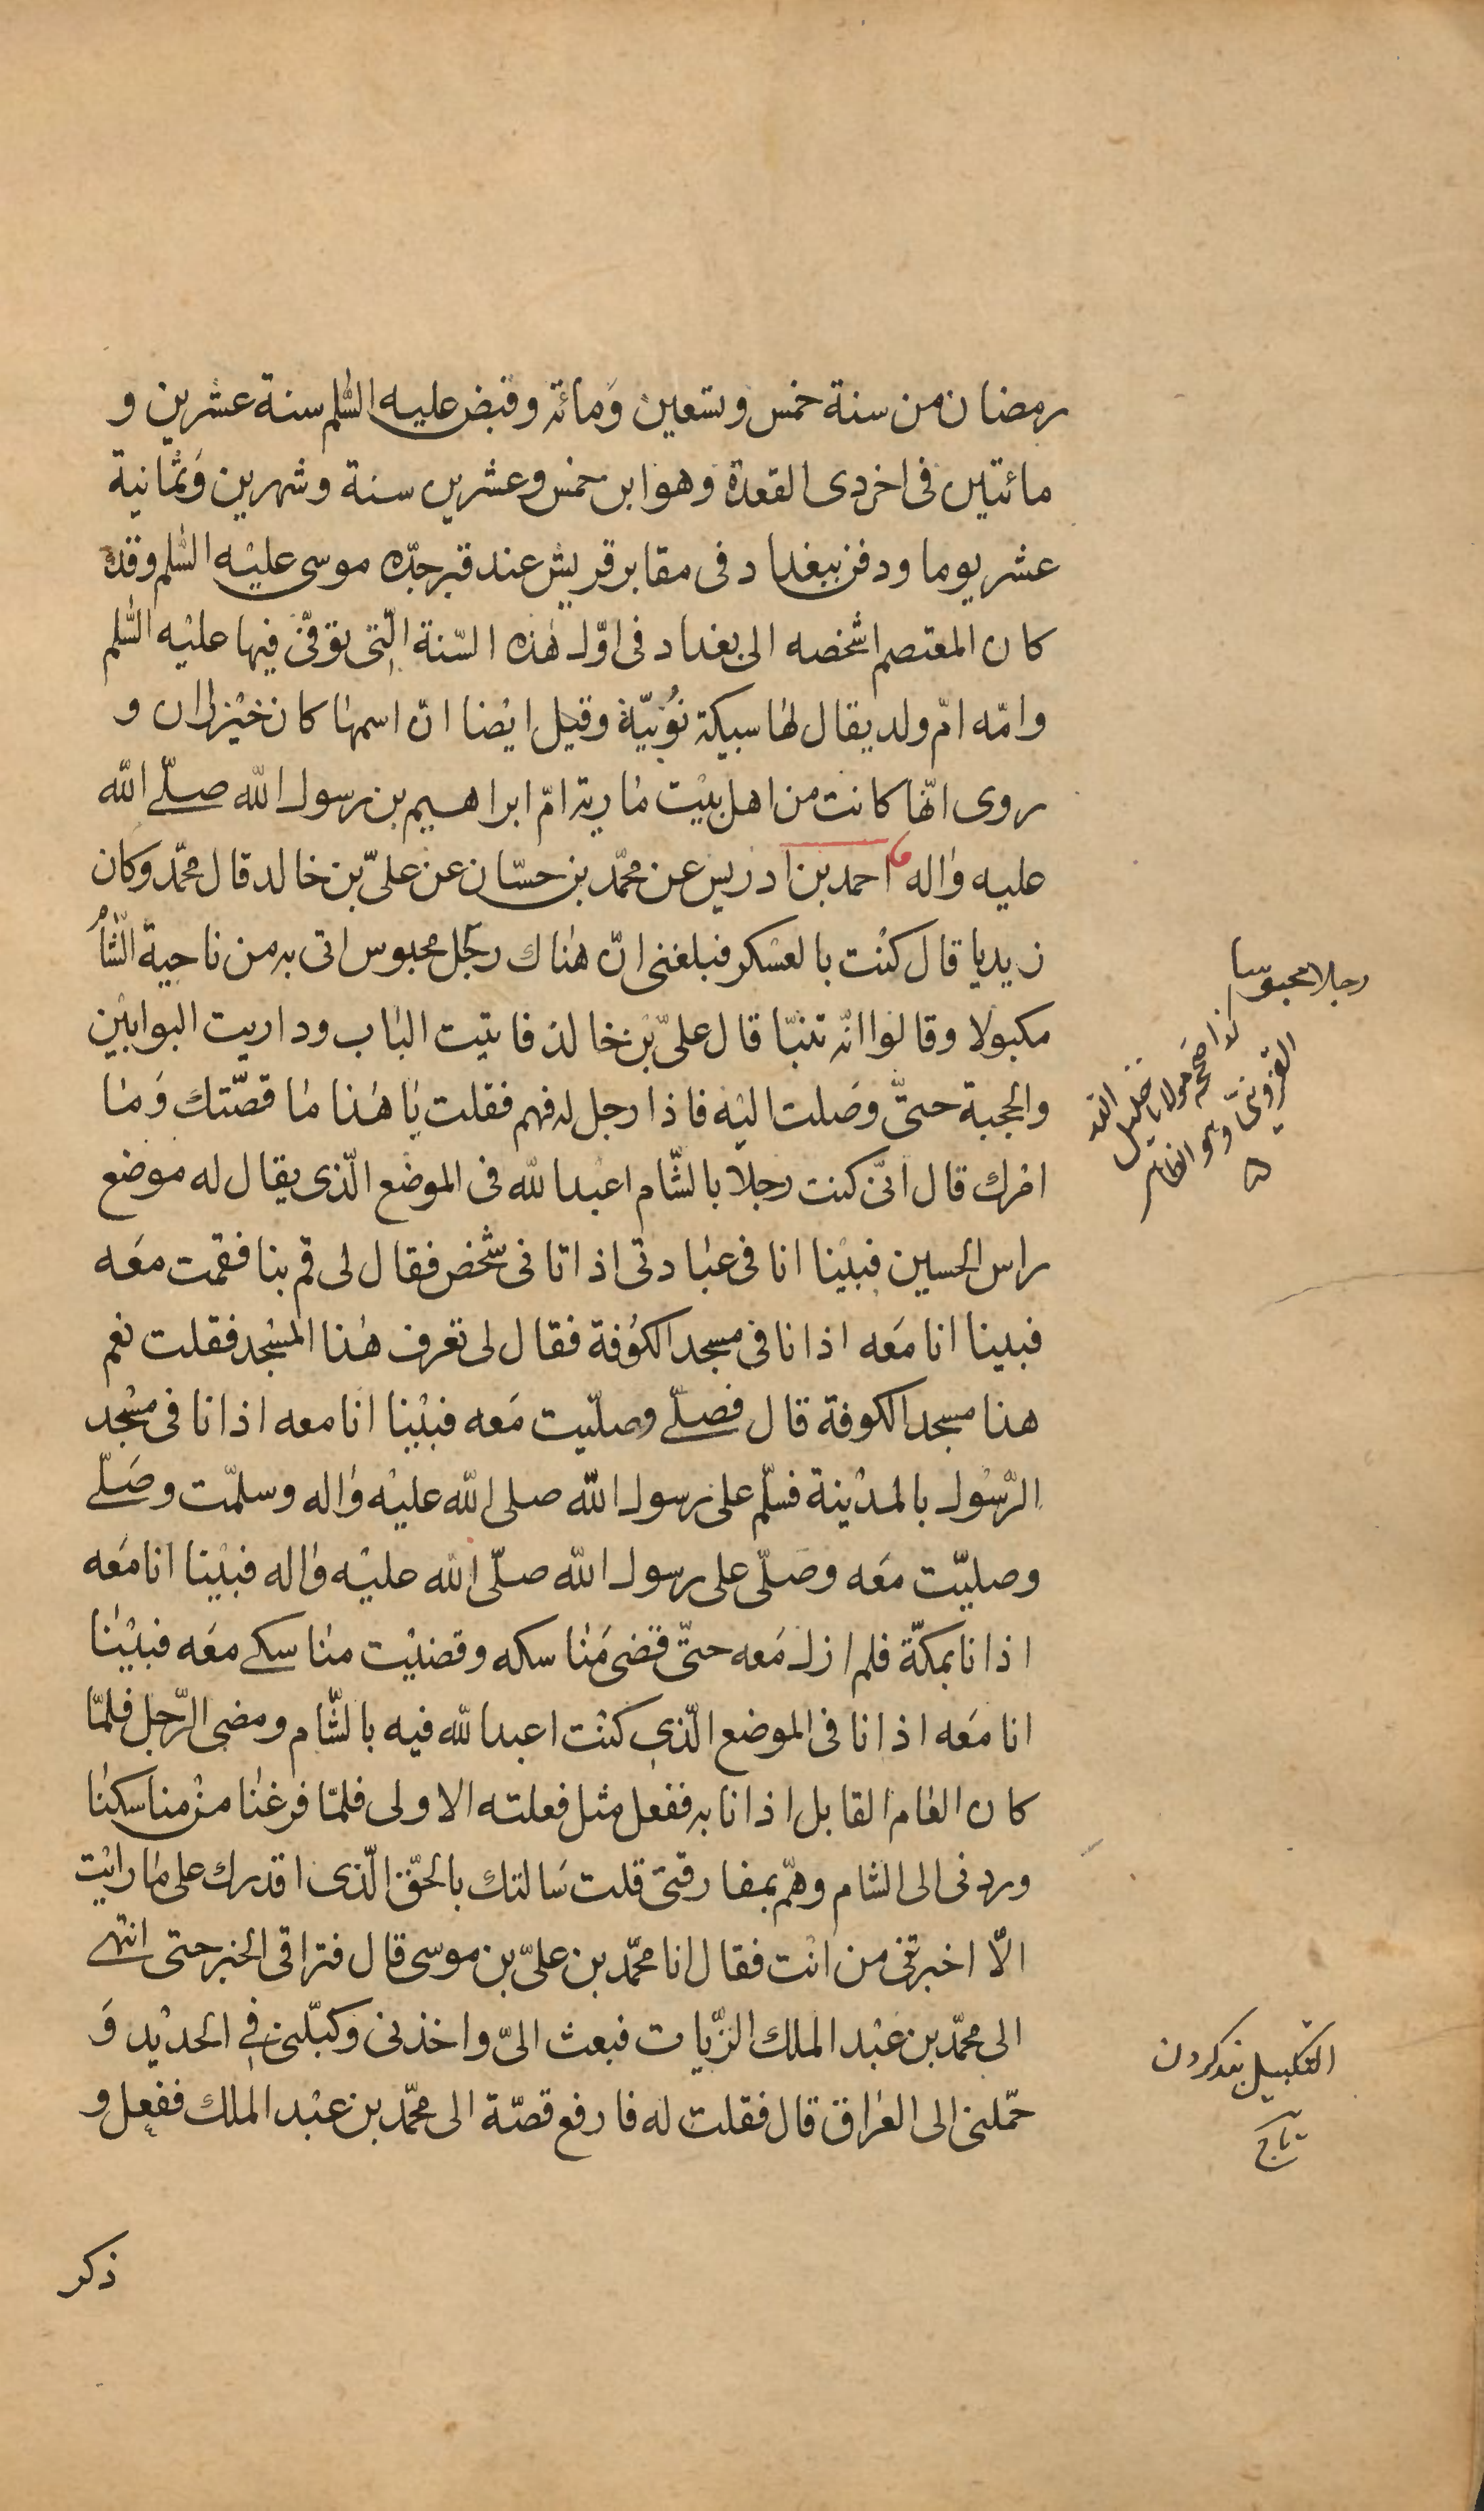 رمضان من سنة خمس وتسعين وَمائة وقبض عليه السّلم سنة عشرين و
مائتين فى اخر ذى القعدة وهو ابن خمس وعشرين سنة وشهرين وَثمانية
عشر يوما ودفن ببغداد فى مقابر قريش عند قبر جدّه موسى عليْه السّلم وقد
كان المعتصم اشخصه الى بغداد فى اوّل هٰذه السّنة الّتى توفّى فيها عليْه السّلم
وامّه امّ ولد يقال لها سبيكة نُوْبيّة وقيل ايْضا انّ اسمها كان خيْزران و
روى انّها كانت من اهل بيْت مارية امّ ابراهيم بن رسول اللّه صلّى اللّه
عليه وٰاله احمد بن ادريس عن محمّد بن حسّان عن علىّ بن خالد قال محمّد وكان
زيديا قال كنْت بالعسْكر فبلغنى انّ هٰناك رجُل محبوس اتى به من ناحية الشّأم
مكبولا وقالوا انّه تنبّا قال علىّ بْن خالد فاتيت الباب وداريت البوابيْن
والحجبة حتّى وصَلت اليْه فاذا رجل له فهم فقلت يا هٰذا ما قصّتك وَما
امْرك قال انّى كنت رجلا بالشّام اعبد اللّه فى الموضع الّذى يقال له موضع
راس الحسين فبيْنا انا فى عبادتى اذ اتانى شخص فقال لى قم بنا فقمت معَه
فبينا انا مَعه اذ انا فى مسجد الكوُفة فقال لى تعرف هٰذا المسْجد فقلت نعم
هذا مسجد الكوفة قال فصلّى وصلّيت مَعه فبيْنا انا معه اذ انا فى مسْجد
الرّسُول بالمديْنة فسلّم على رسول اللّه صلى اللّه عليْه وٰاله وسلمّت وصَلّى
وصليّت معَه وصَلّى على رسول اللّه صلّى اللّه عليْه وٰاله فبيْنا انا معَه
اذ انا بمكّة فلم ازل مَعه حتّى قضى مَناسكه وقضيْت مناسكى معَه فبيْنا
انا مَعه اذ انا فى الموضع الّذى كنْت اعبد اللّه فيه بالشّام ومضى الرّجل فلمّا
كان العام القابل اذ انا به ففعل مثل فعلته الاولى فلمّا فرغنا منْ مناسكنا
وردنى الى الشام وهمّ بمفارقتى قلت سَالتك بالحقّ الّذى اقدرك على ما رايْت
الّا اخبرتنى من انْت فقال انا محمّد بن علىّ بن موسى قال فتراقى الخبر حتى انتهى
الى محمّد بن عبْد الملك الزّيات فبعث الىّ واخذنى وكبّلنى فى الحديْد وَ
حمّلنى الى العراق قال فقلت له فارفع قصّة الى محمّد بن عبْد الملك ففعل و
ذكر
رجلا محبوسا
كذا صححه مولانا خليل اللّه
القزوينى وهو الظاهر
التكبيل بند كردن
تاج